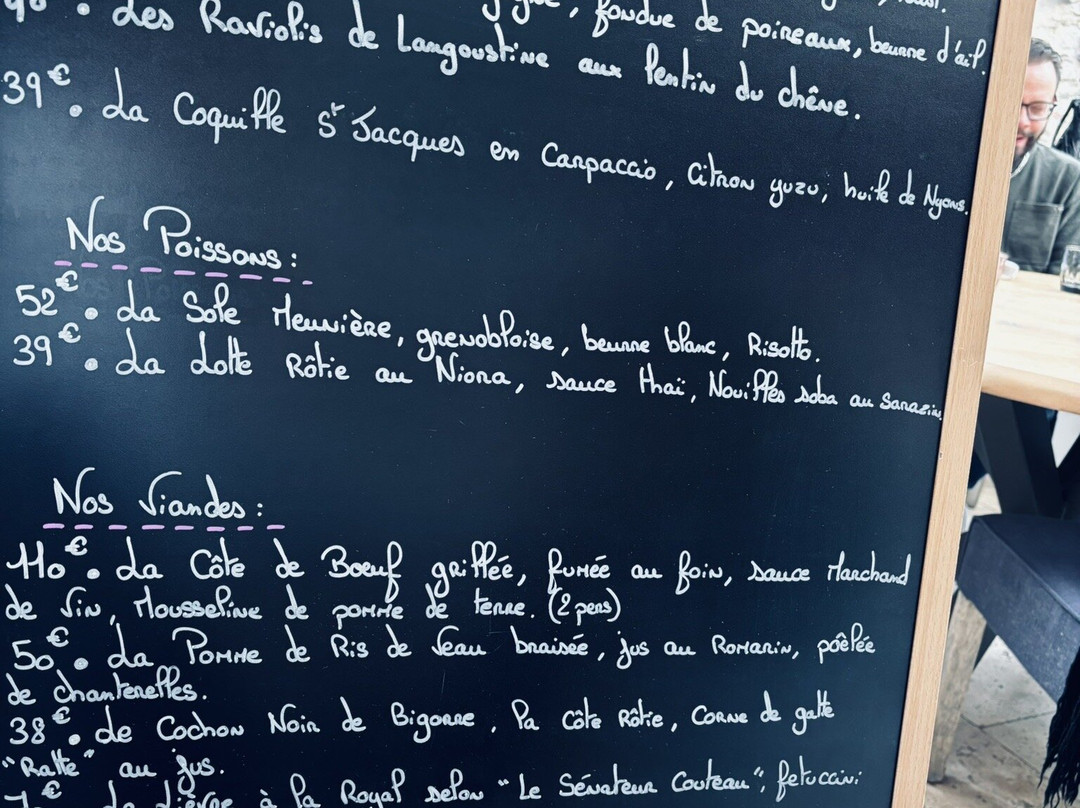 , fondue de poireaux, beurre d'ail.
. Les Raviolis de Langoustine aux Pentin du chêne.
39€. La Coquille St Jacques en Carpaccio, citron yuzu, huile de Nyons.
Nos Poissons :
52€. La Sole Meunière, grenobloise, beurre blanc, Risotto.
39€. La Lotte Rôtie au Niora, sauce thaï, Nouilles soba au Sarazin.
Nos Viandes :
110€. La Côte de Boeuf grillée, fumée au foin, sauce Marchand
de Vin, Mousseline de pomme de terre. (2 pers)
50€. La Pomme de Ris de Veau braisée, jus au Romarin, poêlée
de chanterelles.
38€. de Cochon Noir de Bigorre, la côte Rôtie, Corne de gatte
"Ratte" au jus.
€. Le Lièvre à la Royal selon "Le Sénateur Couteau", fetuccini